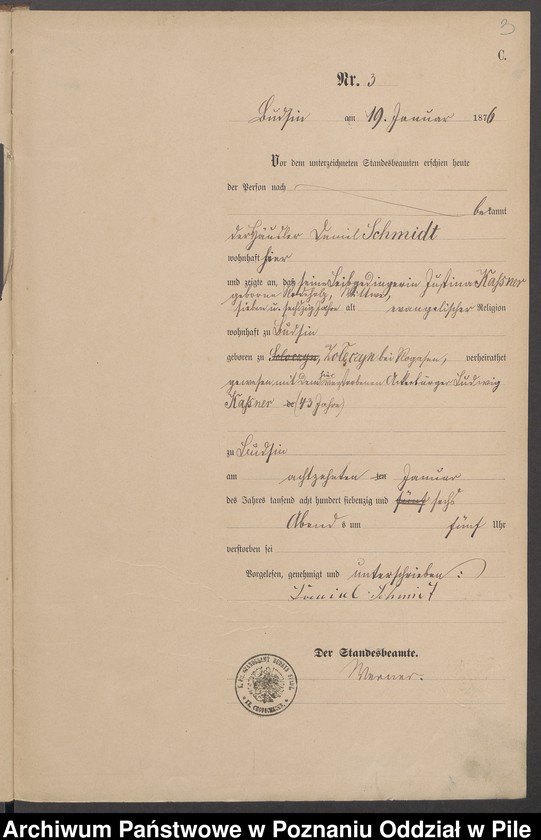 3
C.
Nr. 3
Budsin am 19. Januar 1876
Vor dem unterzeichneten Standesbeamten erschien heute
der Person nach
bekannt
der Häusler Daniel Schmidt
wohnhaft hier
und zeigte an, daß seine Leibgedingerin Justina Kaßner
geborne Wittwe,
sieben u. sechszig Jahre alt evangelischer Religion
wohnhaft zu Budsin
geboren zu bei Rogasen, verheirathet
gewesen mit dem hier verstorbenen Ackerbürger Ludwig
Kaßner (43 Jahre)
zu Budsin
am achtzehnten ten Januar
des Jahres tausend acht hundert siebenzig und fünf sechs
Abends um fünf Uhr
verstorben sei
Vorgelesen, genehmigt und unterschrieben:
Daniel Schmidt
Der Standesbeamte.
Werner.
KR. CHODZIESEN
Archiwum Państwowe w Poznaniu Oddział w Pile